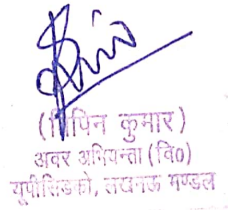 (विपिन कुमार)
अवर अभियन्ता (वि०)
यूपीसिडको, लखनऊ मण्डल